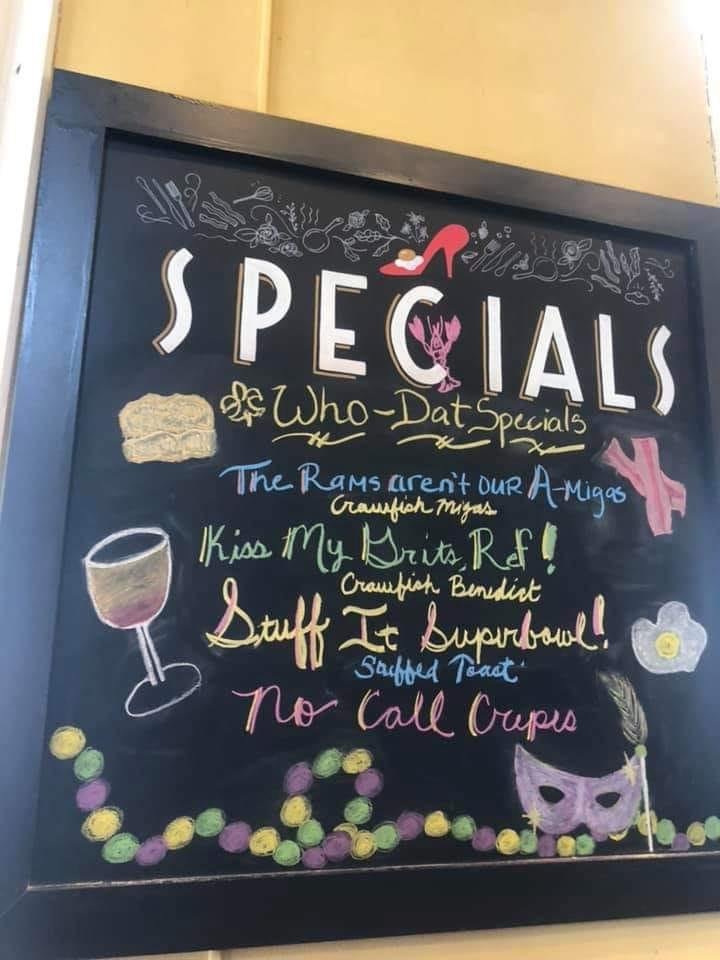 SPECIALS
Who-Dat Specials
The Rams aren't our A-Migas
Crawfish Migas
Kiss My Grits, Ref!
Crawfish Benedict
Stuff It Superbowl!
Stuffed Toast
No Call Crepes